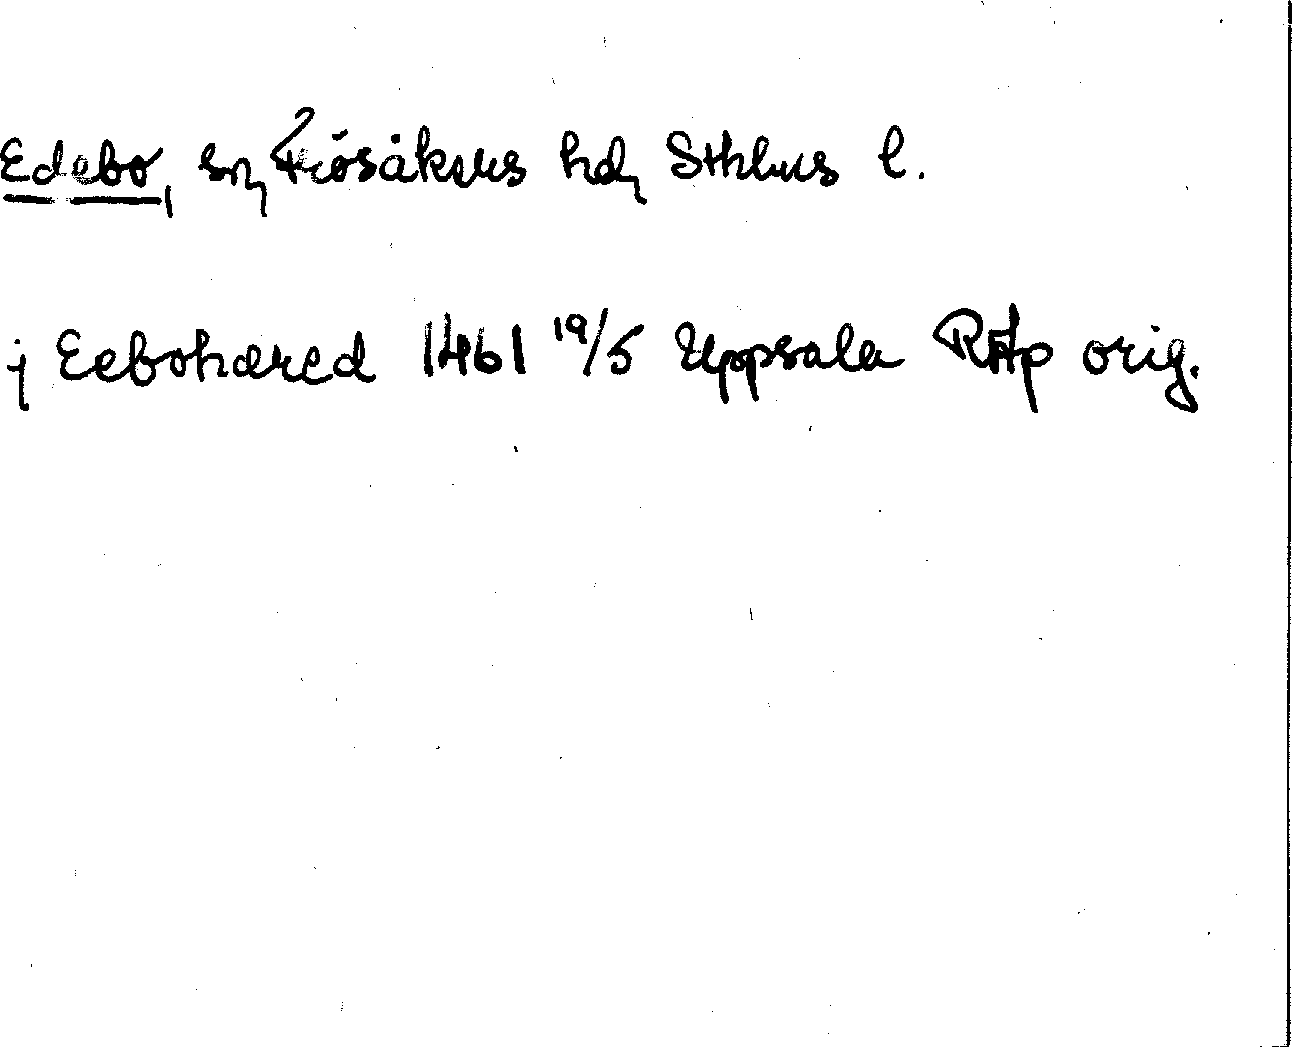 Edebo, sn, Frösåkers hd, Sthlms l.
j Eebohæred 1461 19/5 Uppsala RAp orig.